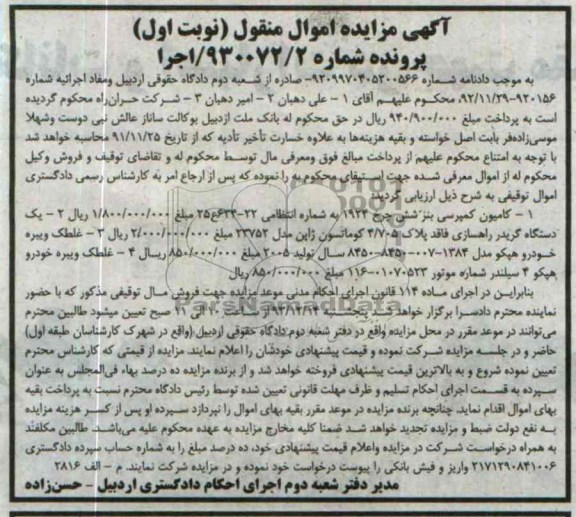 آگهی مزایده اموال منقول (نوبت اول)
پرونده شماره ۹۳۰۰۷۲/۲/اجرا
به موجب دادنامه شماره ۹۲۰۹۹۷۰۴۰۵۲۰۰۵۶۶- صادره از شعبه دوم دادگاه حقوقی اردبیل ومفاد اجرائیه شماره
۹۲۰۱۵۶-۹۲/۱۱/۲۹، محکوم علیهم آقای ۱ - علی دهبان ۲ - امیر دهبان ۳ - شرکت حران‌راه محکوم گردیده
است به پرداخت مبلغ ۹۴۰/۹۰۰/۰۰۰ ریال در حق محکوم له بانک ملت اردبیل بوکالت ساناز عالش نبی دوست وشهلا
موسی‌زاده‌فر بابت اصل خواسته و بقیه هزینه‌ها به علاوه خسارت تأخیر تأدیه که از تاریخ ۹۱/۱۱/۲۵ محاسبه خواهد شد
با توجه به امتناع محکوم علیهم از پرداخت مبالغ فوق ومعرفی مال توسط محکوم له و تقاضای توقیف و فروش وکیل
محکوم له از اموال معرفی شده جهت استیفای محکوم به را نموده که پس از ارجاع امر به کارشناس رسمی دادگستری
اموال توقیفی به شرح ذیل ارزیابی گردید
۱ - کامیون کمپرسی بنز شش چرخ ۱۹۲۴ به شماره انتظامی ۲۲-۶۳۴ع۲۵ مبلغ ۱/۸۰۰/۰۰۰/۰۰۰ ریال ۲ - یک
دستگاه گریدر راهسازی فاقد پلاک ۴/۷۰۵ کوماتسون ژاپن مدل ۲۳۷۵۲ مبلغ ۲/۰۰۰/۰۰۰/۰۰۰ ریال ۳ - غلطک ویبره
خودرو هپکو مدل ۱۳۸۴-۰۰۷-۸۴۵۰-۸۴۵۰ سال تولید ۲۰۰۵ مبلغ ۸۵۰/۰۰۰/۰۰۰ ریال ۴ - غلطک ویبره خودرو
هپکو ۴ سیلندر شماره موتور ۰۱۰۷۰۵۲۳-۱۱۶ مبلغ ۸۵۰/۰۰۰/۰۰۰ ریال
بنابراین در اجرای ماده ۱۱۴ قانون اجرای احکام مدنی موعد مزایده جهت فروش مال توقیفی مذکور که با حضور
نماینده محترم دادسرا برگزار خواهد شد پنجشنبه ۹۳/۱۲/۱۴ از ساعت ۱۰ الی ۱۱ صبح تعیین میشود طالبین محترم
می‌توانند در موعد مقرر در محل مزایده واقع در دفتر شعبه دوم دادگاه حقوقی اردبیل (واقع در شهرک کارشناسان طبقه اول)
حاضر و در جلسه مزایده شرکت نموده و قیمت پیشنهادی خودشان را اعلام نمایند. مزایده از قیمتی که کارشناس محترم
تعیین نموده شروع و به بالاترین قیمت پیشنهادی فروخته خواهد شد و از برنده مزایده ده درصد بهاء فی‌المجلس به عنوان
سپرده به قسمت اجرای احکام تسلیم و ظرف مهلت قانونی تعیین شده توسط رئیس دادگاه محترم نسبت به پرداخت بقیه
بهای اموال اقدام نماید. چنانچه برنده مزایده در موعد مقرر بقیه بهای اموال را نپردازد سپرده او پس از کسر هزینه مزایده
به نفع دولت ضبط و مزایده تجدید خواهد شد ضمنا کلیه مخارج مزایده به عهده محکوم علیه می‌باشد. طالبین مکلفند
به همراه درخواست شرکت در مزایده واعلام قیمت پیشنهادی خود، ده درصد مبلغ را به شماره حساب سپرده دادگستری
۲۱۷۱۲۹۰۸۴۱۰۰۶ واریز و فیش بانکی را پیوست درخواست خود نموده و در مزایده شرکت نمایند. م - الف ۲۸۱۶
مدیر دفتر شعبه دوم اجرای احکام دادگستری اردبیل - حسن‌زاده
ParsNamadData